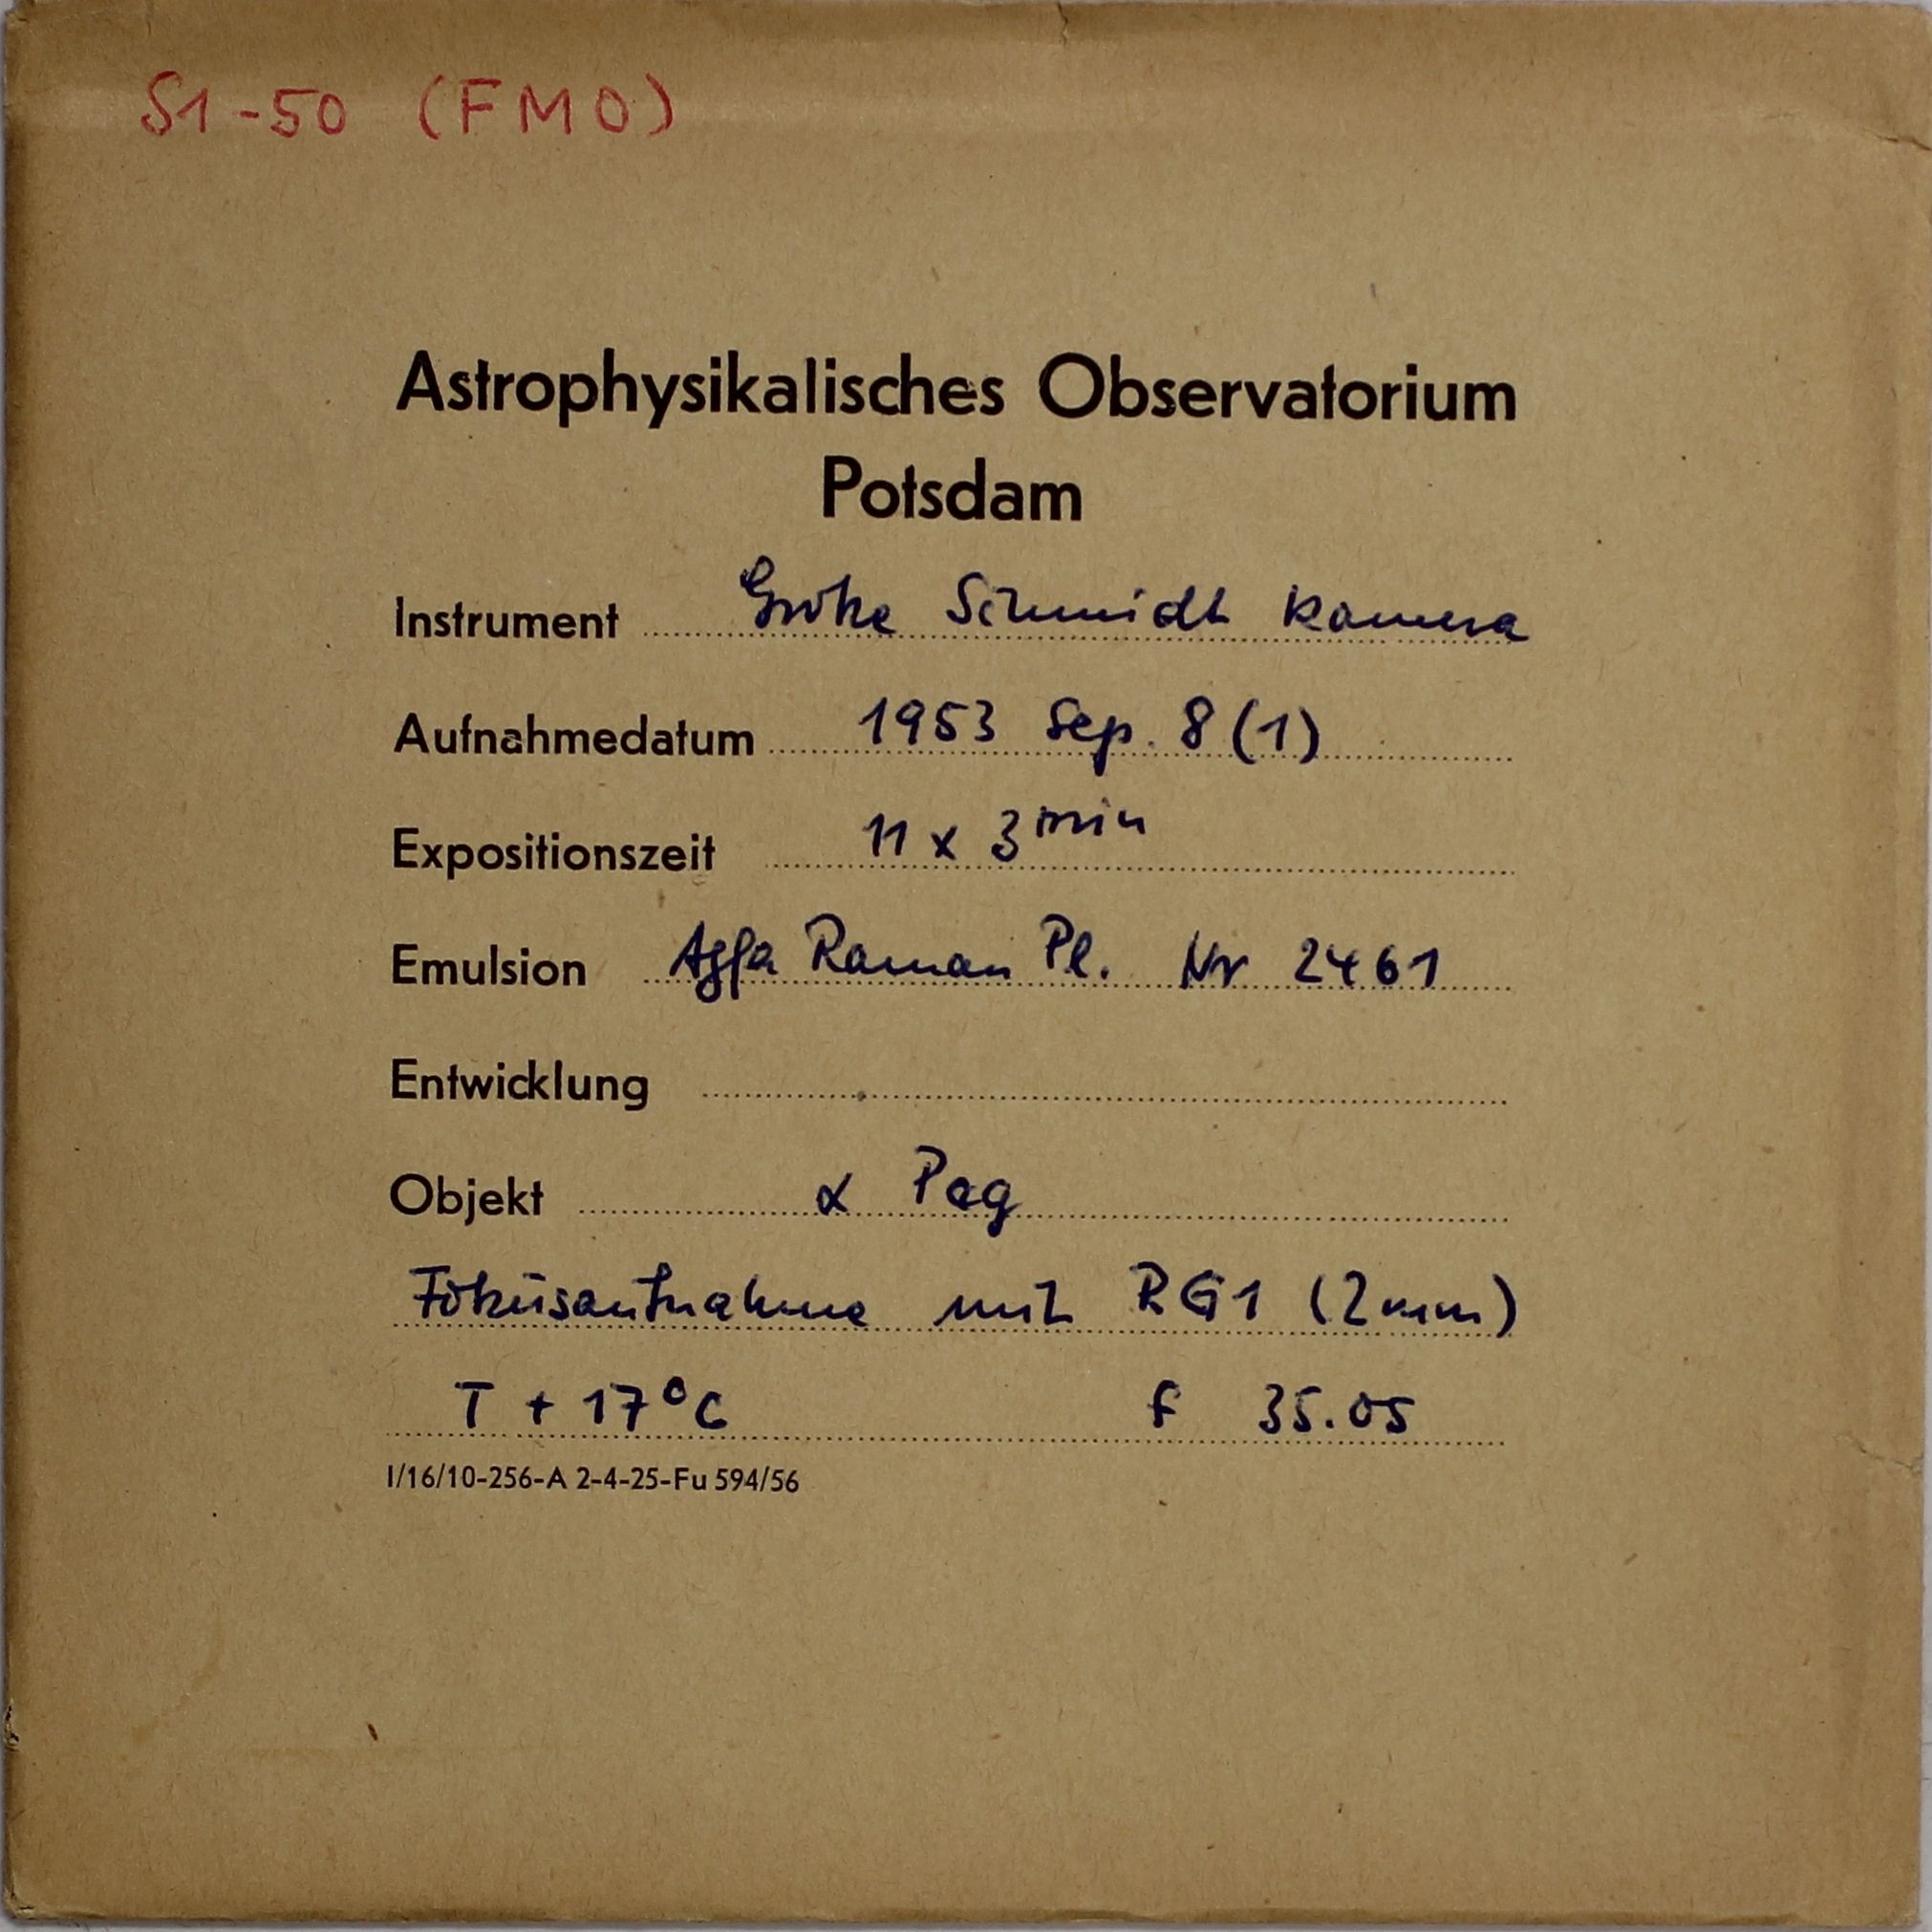 S1-50 (FMO)
Astrophysikalisches Observatorium
Potsdam
Instrument Große Schmidt Kamera
Aufnahmedatum 1953 Sep. 8 (1)
Expositionszeit 11 x 3 min
Emulsion Agfa Raman Pl. Nr 2461
Entwicklung
Objekt α Peg
Fokusaufnahme mit RG1 (2mm)
T + 17°C f 35.05
I/16/10-256-A 2-4-25-Fu 594/56